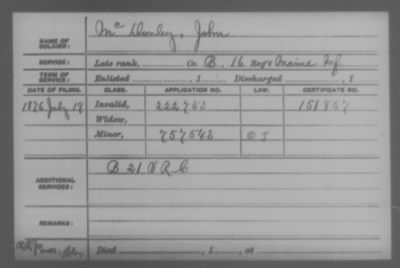 NAME OF SOLDIER: Mc Donley, John
SERVICE: Late rank, Co. B, 16 Reg't Maine Inf
TERM OF SERVICE: Enlisted , 1 Discharged , 1
DATE OF FILING. CLASS. APPLICATION NO. LAW. CERTIFICATE NO.
1876 July 19 Invalid, 222763 151857
Widow,
Minor, 757542 O J
ADDITIONAL SERVICES: B 21 V R C
REMARKS:
Died , 1 , at